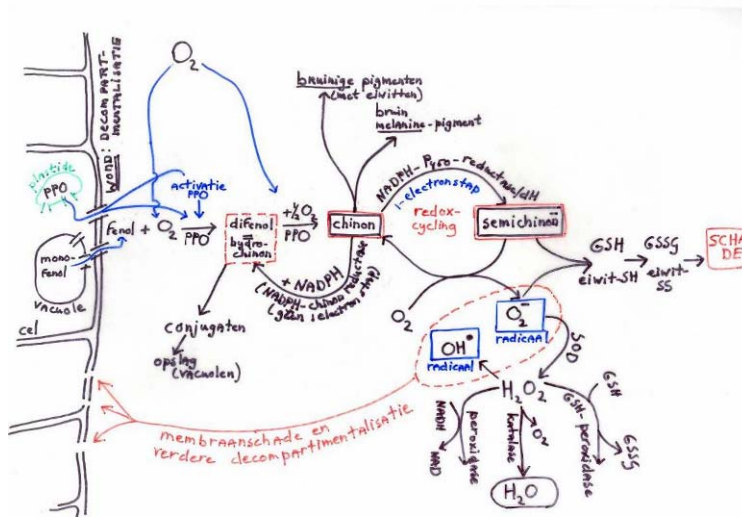 O₂
WOND: DECOMPART-
MENTALISATIE
plastide
PPO
activatie
PPO
Fenol + O₂
PPO
mono-
fenol
vacuole
cel
difenol
=
hydro-
chinon
+½O₂
PPO
chinon
bruinige pigmenten
(met eiwitten)
bruin
melanine-pigment
NADPH-P450-reductase/dH
1-electronstap
redox-
cycling
semichinon
+ NADPH
(NADPH-chinon reductase)
(géén 1 electronstap)
conjugaten
opslag
(vacuolen)
O₂
O₂⁻
radicaal
OH•
radicaal
GSH
eiwit-SH
GSSG
eiwit-
SS
SCHA
DE
SOD
H₂O₂
NADH
NAD
peroxidase
katalase
O₂
H₂O
GSH
GSH-peroxidase
GSSG
membraanschade en
verdere decompartimentalisatie